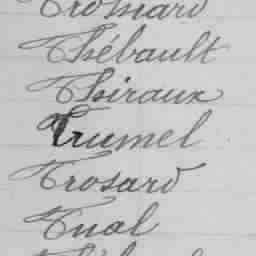 Trosnard
Thébault
Thiraux
Trumel
Trosard
Tual